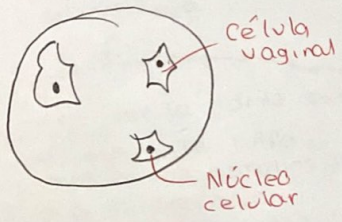 Célula
vaginal
Núcleo
celular